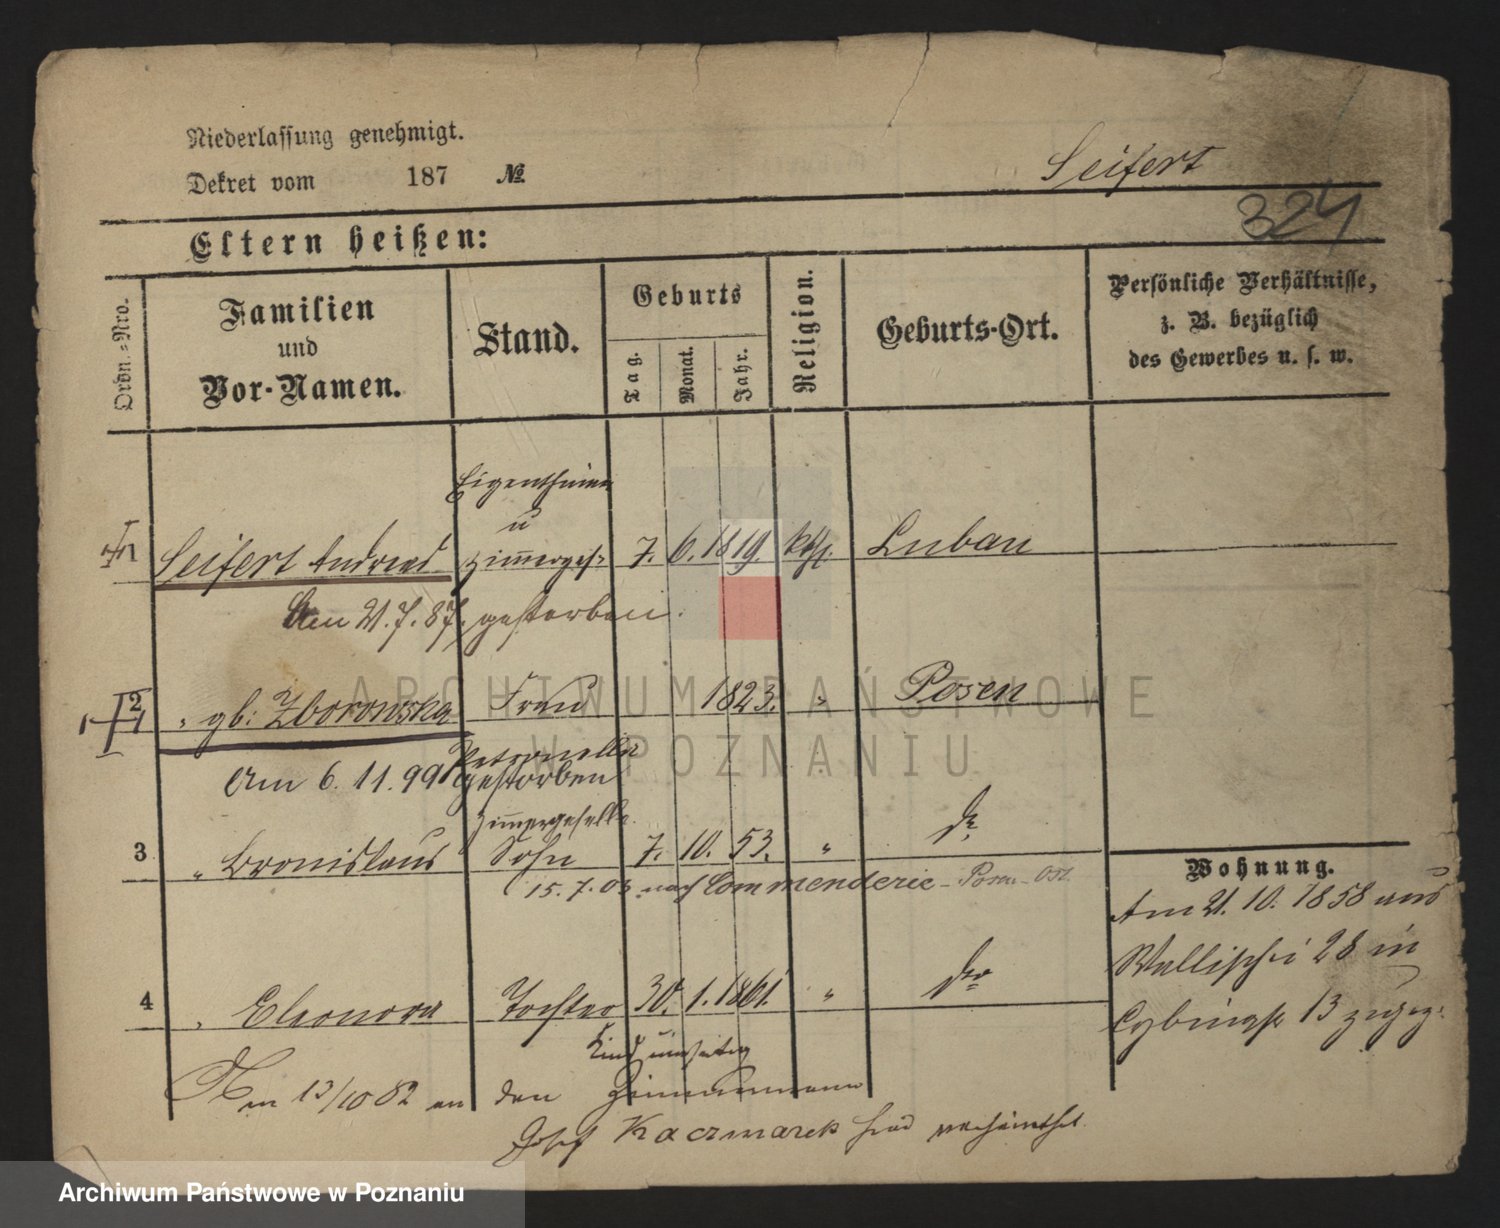 Niederlassung genehmigt.
Dekret vom 187 №
Seifert
324
Eltern heißen:
Ordn.-Nro.
Familien
und
Vor-Namen.
Stand.
Geburts
Tag.
Monat.
Jahr.
Religion.
Geburts-Ort.
Persönliche Verhältnisse,
z. B. bezüglich
des Gewerbes u. s. w.
Eigenthümer
u
1 Seifert Andreas Zimmerges. 7. 6. 1819. kth. Luban
Am 21.7.87. gestorben.
2 " gb: Zborowska Frau 1823. " Posen
Petronella
Am 6.11.99 gestorben
Zimmergeselle.
3 " Bronislaus Sohn 7. 10. 53. " do
15.7.03. nach Commenderie - Posen-Ost.
Wohnung.
Am 21. 10. 1858 aus
Wallischei 28 in
Cybinastr 13
4 " Eleonora Tochter 30. 1. 1861. " do
Kind
Am 13/10 82 an den Zimmermann
Josef Kaczmarek verheirathet.
ARCHIWUM PAŃSTWOWE
W POZNANIU
Archiwum Państwowe w Poznaniu